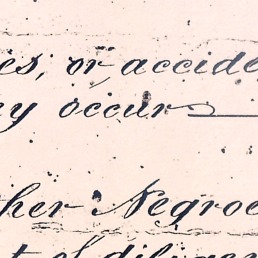 es, or accide
ny occur
her Negroe
t of diligen